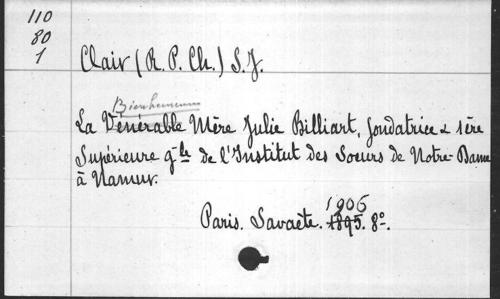 110
80
1
Clair (R. P. Ch.) S. J.
Bienheureuse
La Vénérable Mère Julie Billiart, fondatrice & 1ère
Supérieure gle de l'Institut des Soeurs de Notre-Dame
à Namur.
1906
Paris. Savaète. 1895. 8º.